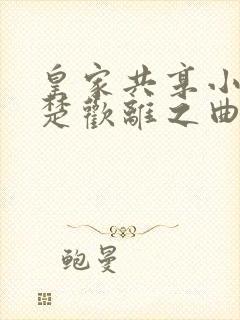 皇家共享小
楚歡離之曲
鲍曼